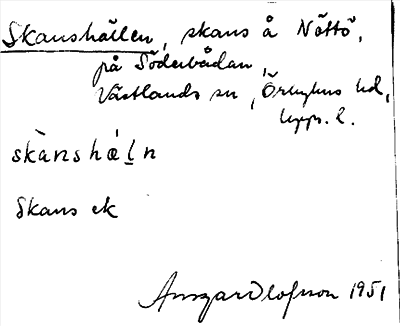 Skanshällen, skans å Nöttö,
på Söderbådan,
Västlands sn, Örbyhus hd,
Upps. l.
skànshǽḷn
Skans ek
Ansgar Olofsson 1951